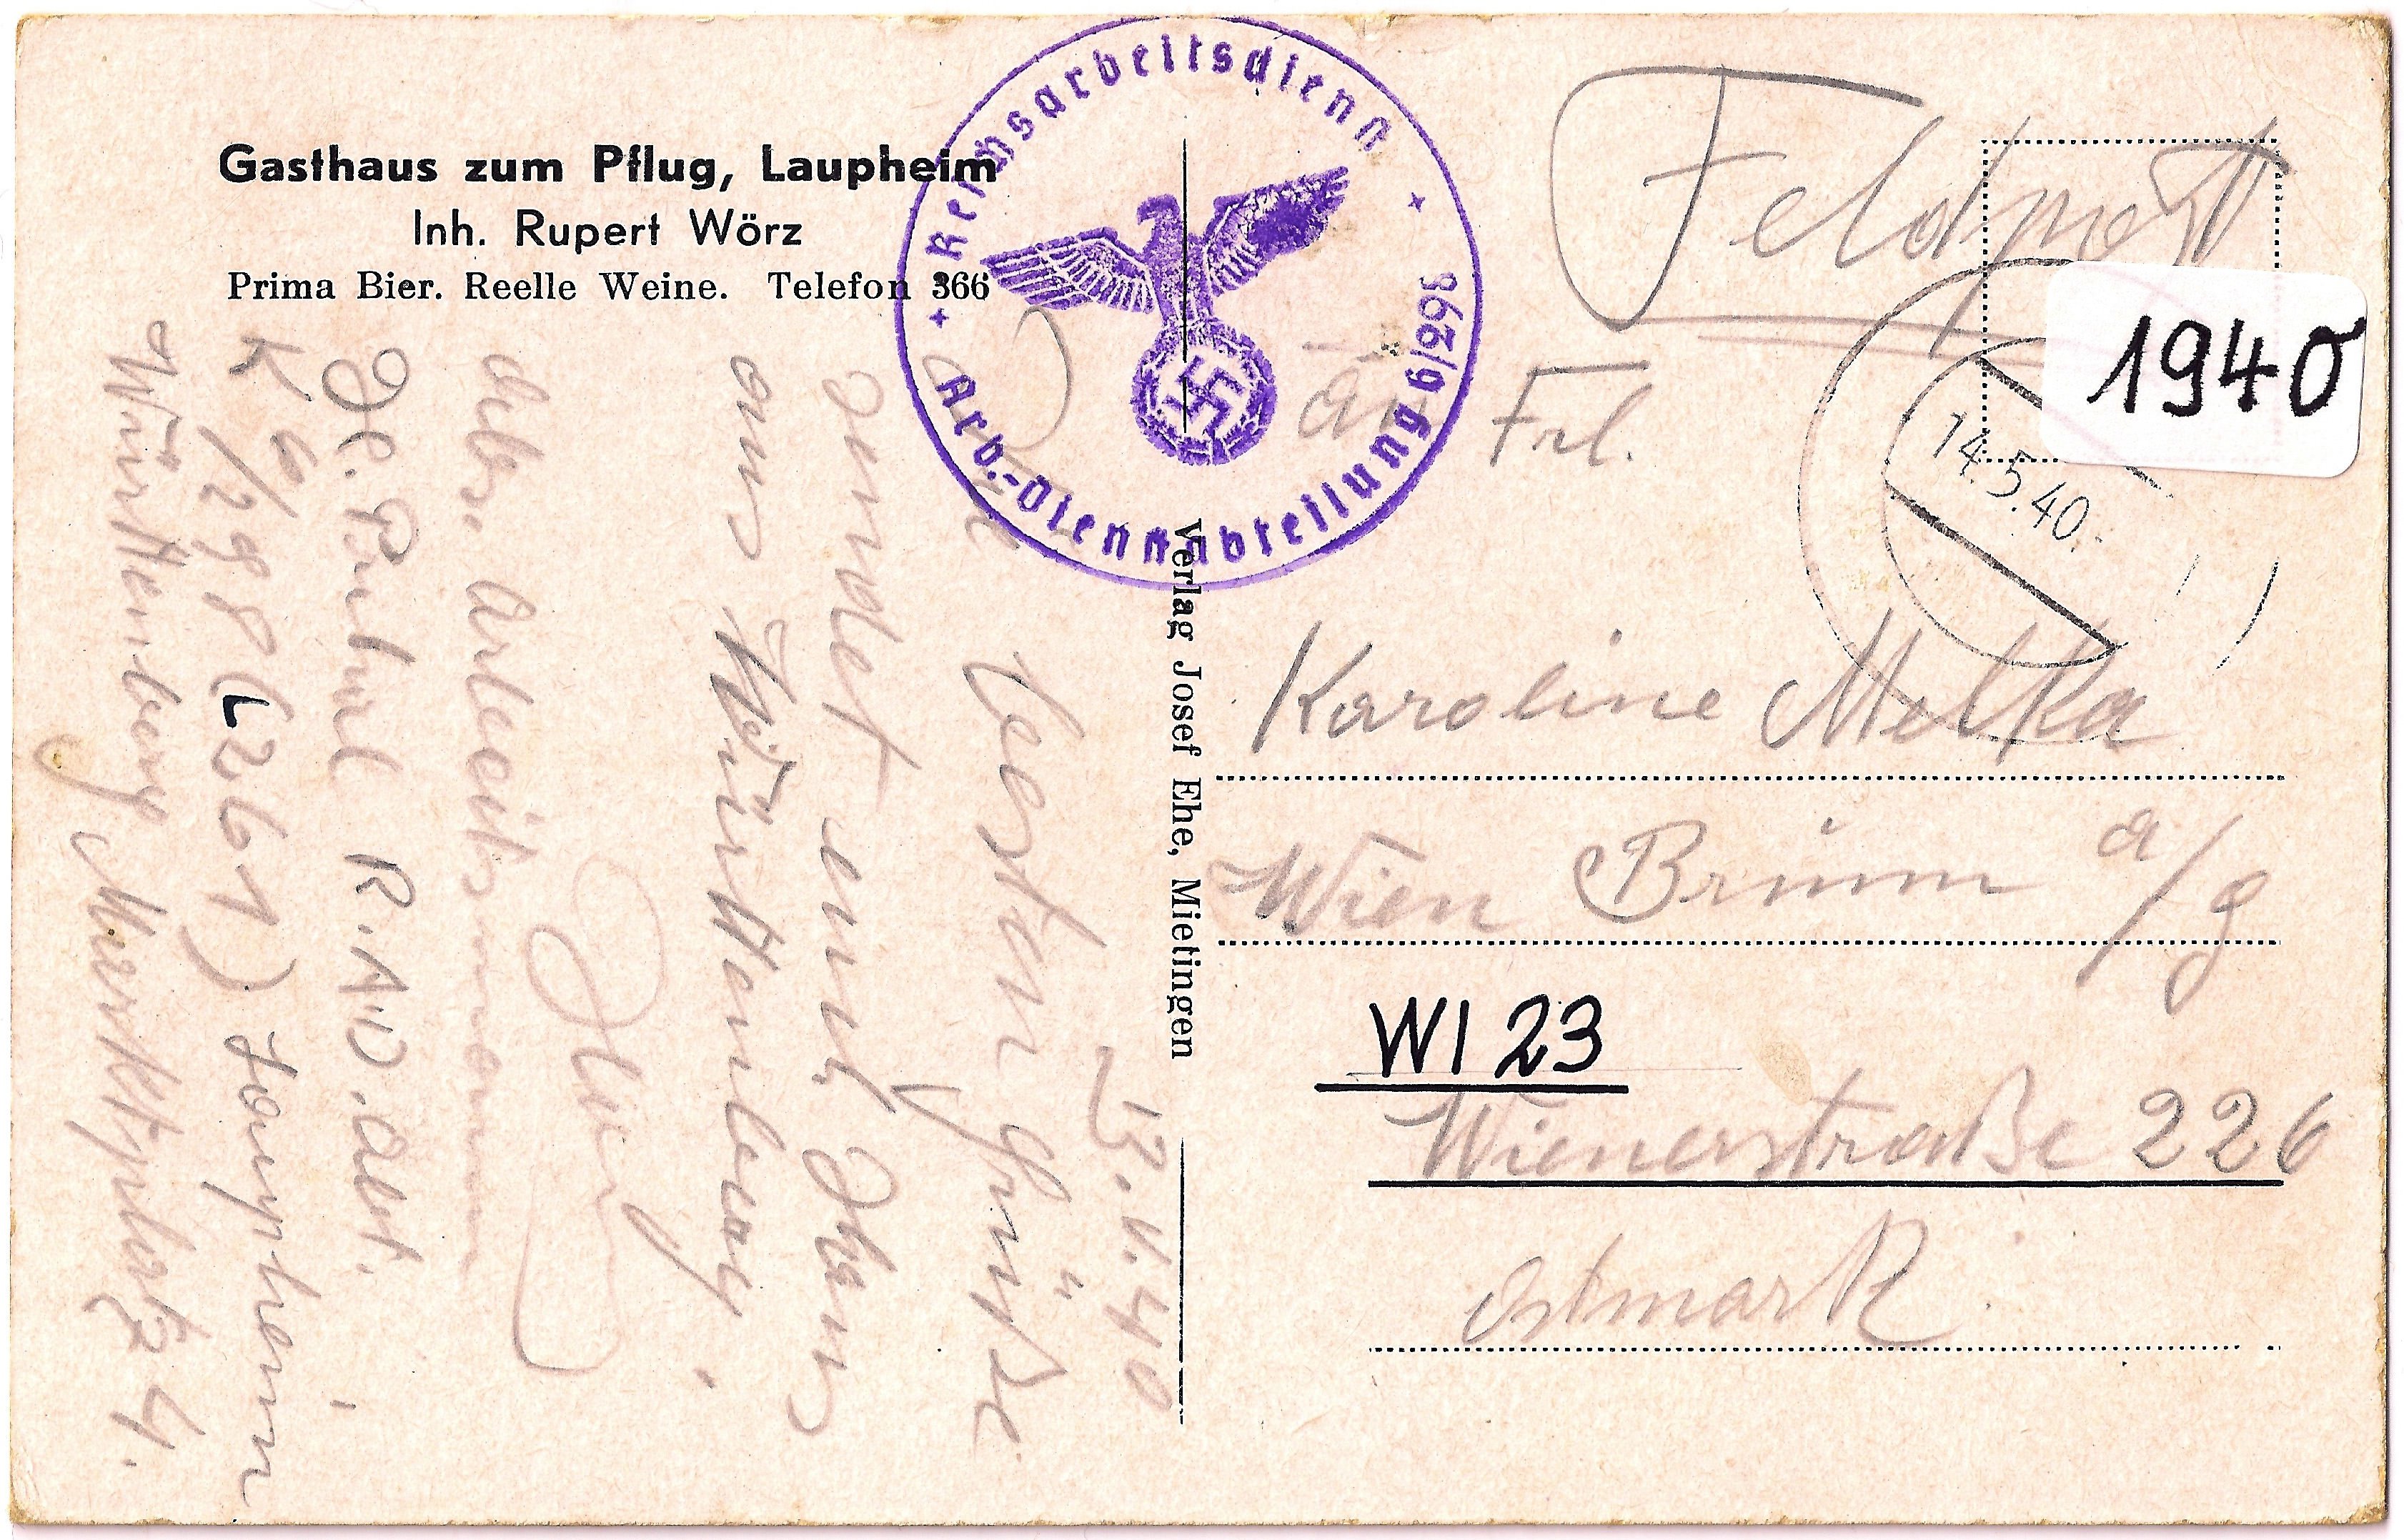 Gasthaus zum Pflug, Laupheim
Inh. Rupert Wörz
Prima Bier. Reelle Weine. Telefon 366
Reichsarbeitsdienst
Arb.-Dienstabteilung 6/298
Feldpost
1940
14.5.40.
an Frl.
Karoline Melka
Wien Brunn a/g
WI 23
Wienerstraße 226
Ostmark
Verlag Josef Ehe, Mietingen
13.V.40
Die besten Grüße
sendet euch Hans
aus Württemberg.
Hans
Abs. Arbeitsmann
R.A.D. Abt.
K 6/298 (L2611) Laupheim
Württemberg Marktplatz 4.